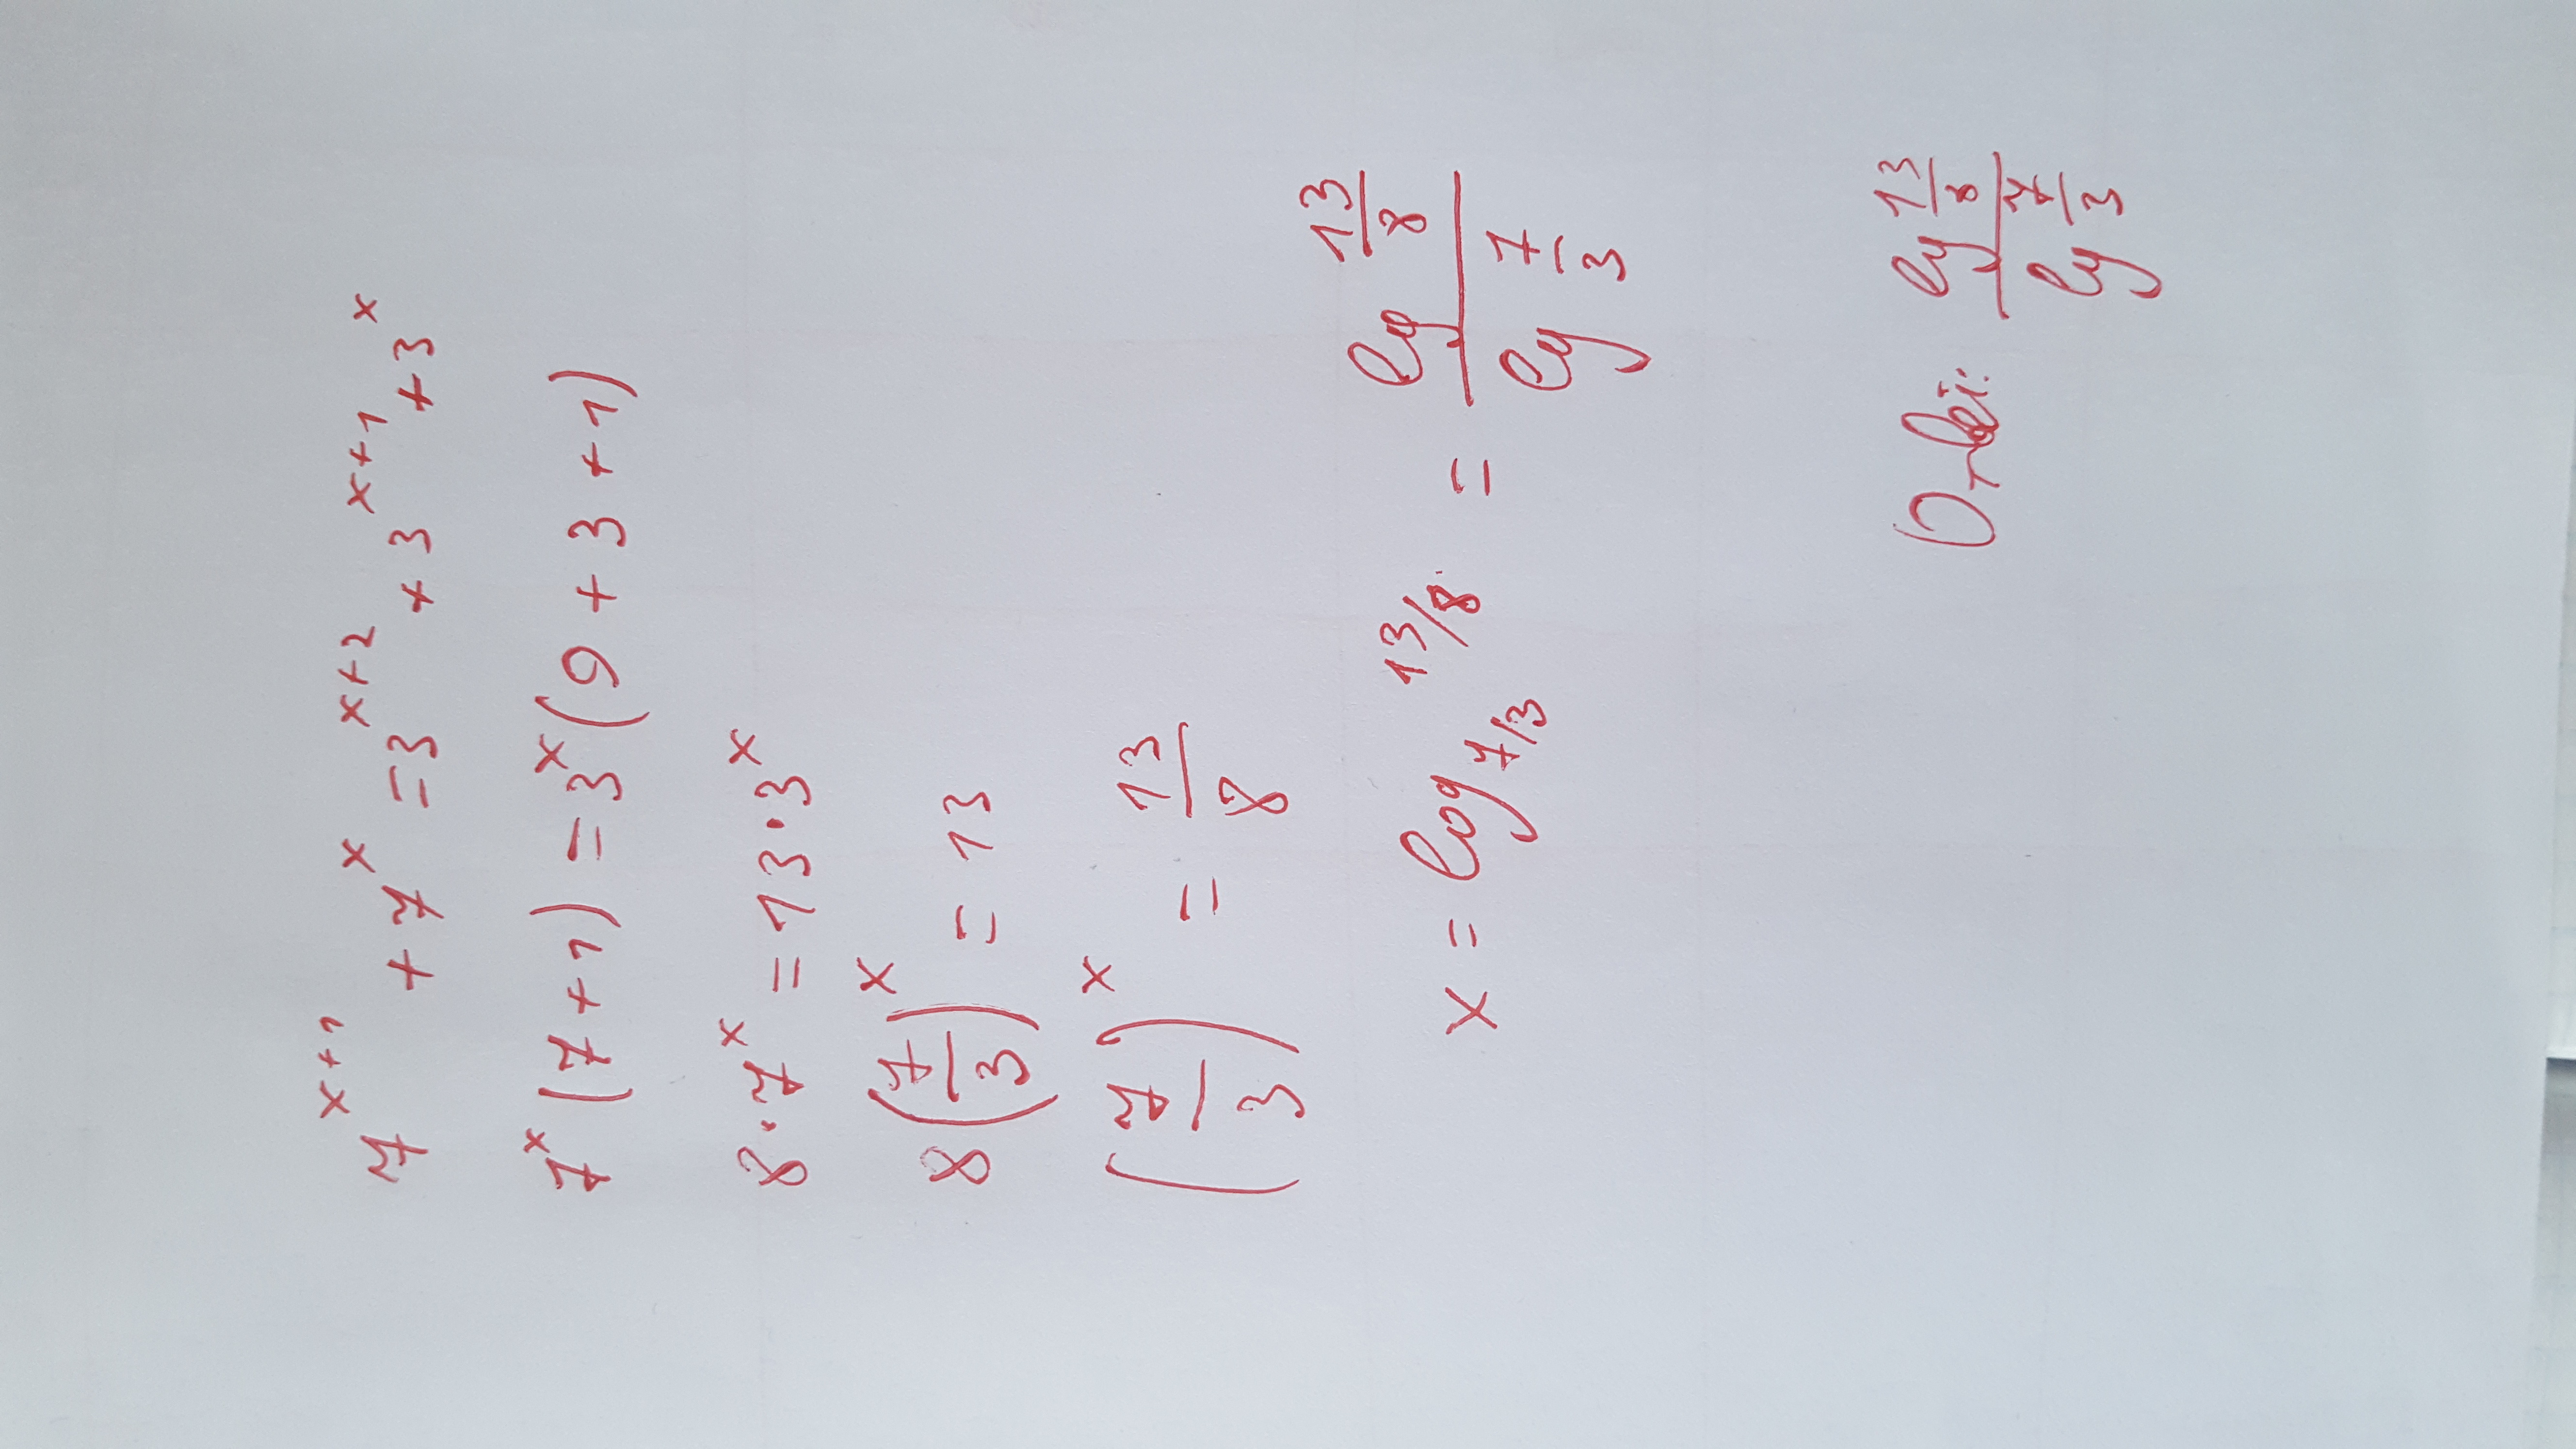 7^{x+1} + 7^x = 3^{x+2} + 3^{x+1} + 3^x
7^x (7 + 1) = 3^x (9 + 3 + 1)
8 · 7^x = 13 · 3^x
8 (7/3)^x = 13
(7/3)^x = 13/8
x = log_{7/3} 13/8 = \frac{lg \frac{13}{8}}{lg \frac{7}{3}}
\frac{lg \frac{13}{8}}{lg \frac{7}{3}}